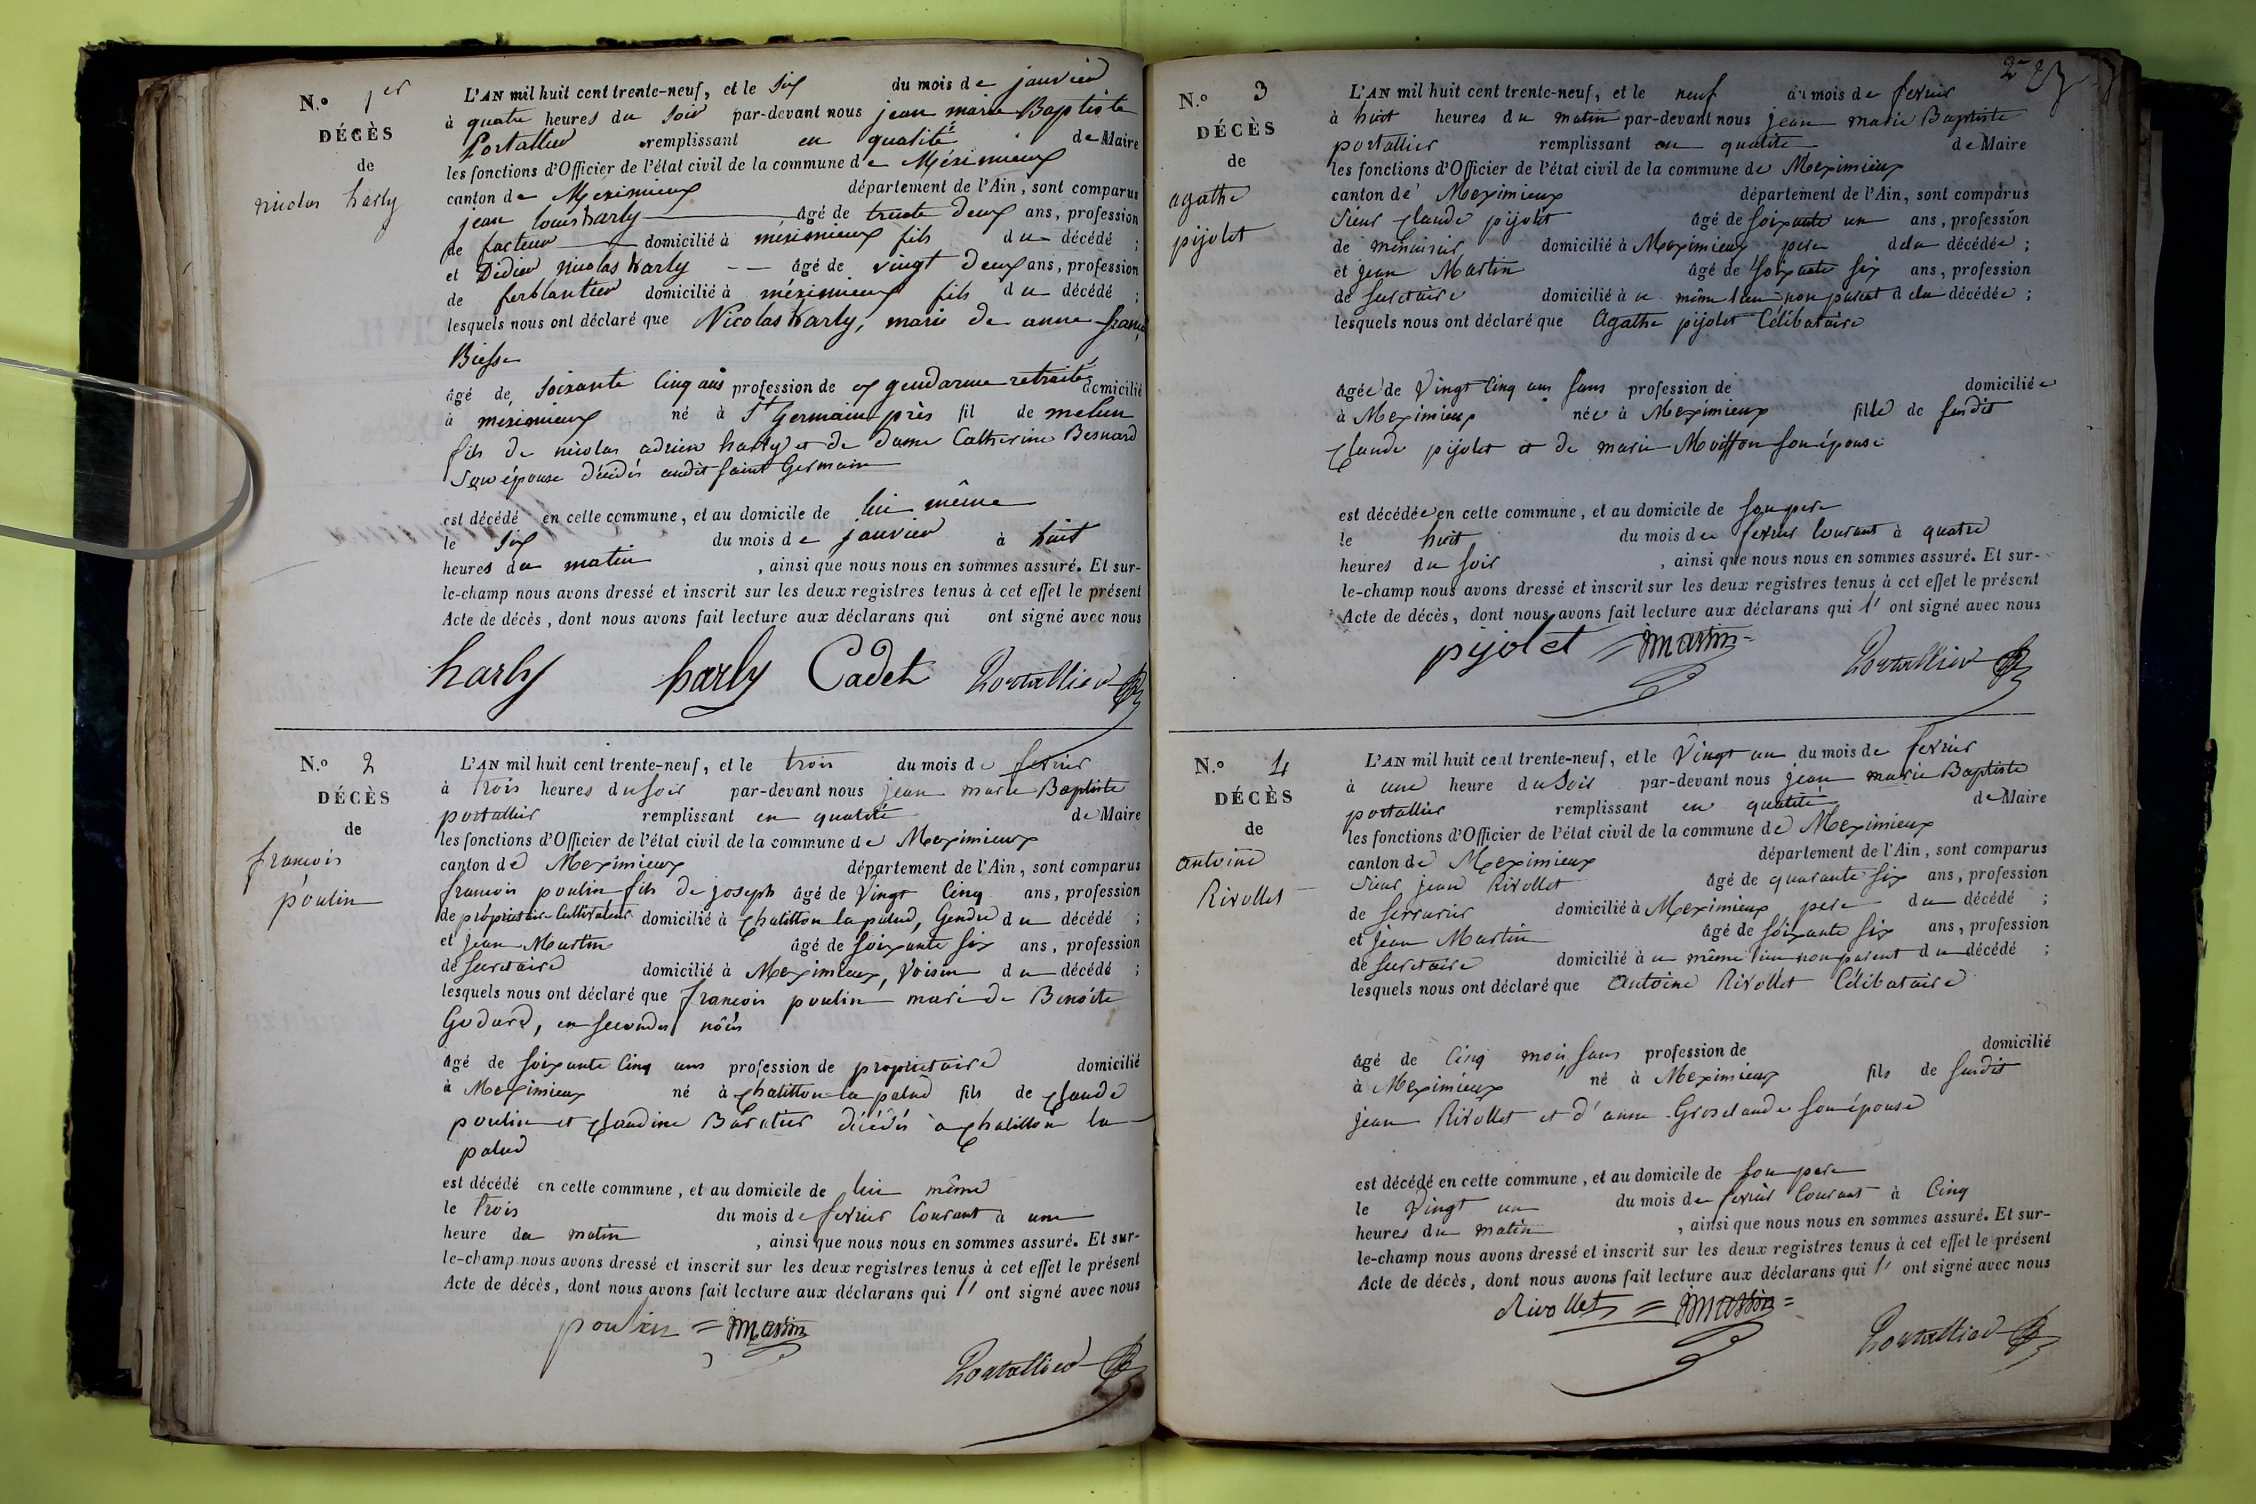 N.° 1er
DÉCÈS
de
nicolas harly
L'AN mil huit cent trente-neuf, et le Six du mois de janvier
à quatre heures du Soir par-devant nous jean marie Baptiste
Portallier remplissant en qualité de Maire
les fonctions d'Officier de l'état civil de la commune de Méximieux
canton de Méximieux département de l'Ain, sont comparus
jean louis harly âgé de trente deux ans, profession
de facteur domicilié à méximieux fils du décédé ;
et Didier nicolas harly âgé de vingt deux ans, profession
de ferblantier domicilié à méximieux fils du décédé ;
lesquels nous ont déclaré que Nicolas harly, marié de anne
âgé de Soixante Cinq ans profession de ex gendarme retraité domicilié
à méximieux né à St Germain près fil de melun
fils de nicolas adrien harly et de dame Catherine Besnard
Son épouse décédés audit Saint Germain
est décédé en cette commune, et au domicile de lui même
le Six du mois de janvier à huit
heures du matin , ainsi que nous nous en sommes assuré. Et sur-
le-champ nous avons dressé et inscrit sur les deux registres tenus à cet effet le présent
Acte de décès, dont nous avons fait lecture aux déclarans qui ont signé avec nous
harly harly Cadet Portallier
N.° 2
DÉCÈS
de
francois
poulin
L'AN mil huit cent trente-neuf, et le trois du mois de fevrier
à trois heures du soir par-devant nous jean marie Baptiste
portallier remplissant en qualité de Maire
les fonctions d'Officier de l'état civil de la commune de Meximieux
canton de Meximieux département de l'Ain, sont comparus
francois poulin fils de joseph âgé de Vingt Cinq ans, profession
de propriétaire Cultivateur domicilié à chatillon la palud, Gendre du décédé ;
et jean Martin âgé de soixante six ans, profession
de secretaire domicilié à Meximieux, Voisin du décédé ;
lesquels nous ont déclaré que francois poulin marié de Benoite
Godard, en secondes nôces
âgé de soixante Cinq ans profession de propriétaire domicilié
à Meximieux né à chatillon la palud fils de claude
poulin et claudine Baratier décédés à chatillon la
palud
est décédé en cette commune, et au domicile de lui même
le trois du mois de fevrier Courant à une
heure du matin , ainsi que nous nous en sommes assuré. Et sur-
le-champ nous avons dressé et inscrit sur les deux registres tenus à cet effet le présent
Acte de décès, dont nous avons fait lecture aux déclarans qui ont signé avec nous
poulin = Jmartin
Portallier
N.° 3
DÉCÈS
de
agathe
pijolet
L'AN mil huit cent trente-neuf, et le neuf du mois de fevrier
à huit heures du matin par-devant nous jean marie Baptiste
portallier remplissant en qualité de Maire
les fonctions d'Officier de l'état civil de la commune de Meximieux
canton de Meximieux département de l'Ain, sont comparus
Sieur claude pijolet âgé de soixante un ans, profession
de menuisier domicilié à Meximieux pere dela décédée ;
et jean Martin âgé de soixante six ans, profession
de secretaire domicilié à u même lieu non parent dela décédée ;
lesquels nous ont déclaré que Agathe pijolet Célibataire
âgée de Vingt Cinq ans sans profession de domiciliée
à Meximieux née à Meximieux fille de susdit
claude pijolet et de marie Moiffon son épouse
est décédée en cette commune, et au domicile de son pere
le huit du mois de fevrier Courant à quatre
heures du soir , ainsi que nous nous en sommes assuré. Et sur-
le-champ nous avons dressé et inscrit sur les deux registres tenus à cet effet le présent
Acte de décès, dont nous avons fait lecture aux déclarans qui ont signé avec nous
pijolet = Jmartin =
Portallier
N.° 4
DÉCÈS
de
antoine
Rivollet
L'AN mil huit cent trente-neuf, et le Vingt un du mois de fevrier
à une heure du soir par-devant nous jean marie Baptiste
portallier remplissant en qualité de Maire
les fonctions d'Officier de l'état civil de la commune de Meximieux
canton de Meximieux département de l'Ain, sont comparus
Sieur jean Rivollet âgé de quarante six ans, profession
de serrurier domicilié à Meximieux pere du décédé ;
et jean Martin âgé de soixante six ans, profession
de secretaire domicilié à u même lieu non parent du décédé ;
lesquels nous ont déclaré que antoine Rivollet Célibataire
âgé de Cinq mois, sans profession de domicilié
à Meximieux né à Meximieux fils de susdit
jean Rivollet et d'anne Grosclaude son épouse
est décédé en cette commune, et au domicile de son pere
le Vingt un du mois de fevrier Courant à Cinq
heures du matin , ainsi que nous nous en sommes assuré. Et sur-
le-champ nous avons dressé et inscrit sur les deux registres tenus à cet effet le présent
Acte de décès, dont nous avons fait lecture aux déclarans qui ont signé avec nous
Rivollet = Jmartin =
Portallier